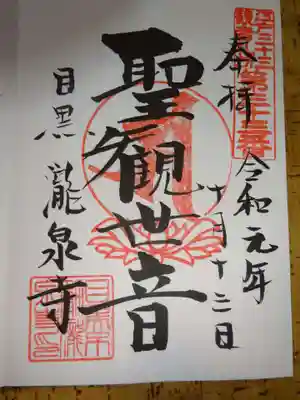 奉拝
令和元年
十月十二日
聖観世音
目黒 瀧泉寺
第三十三番